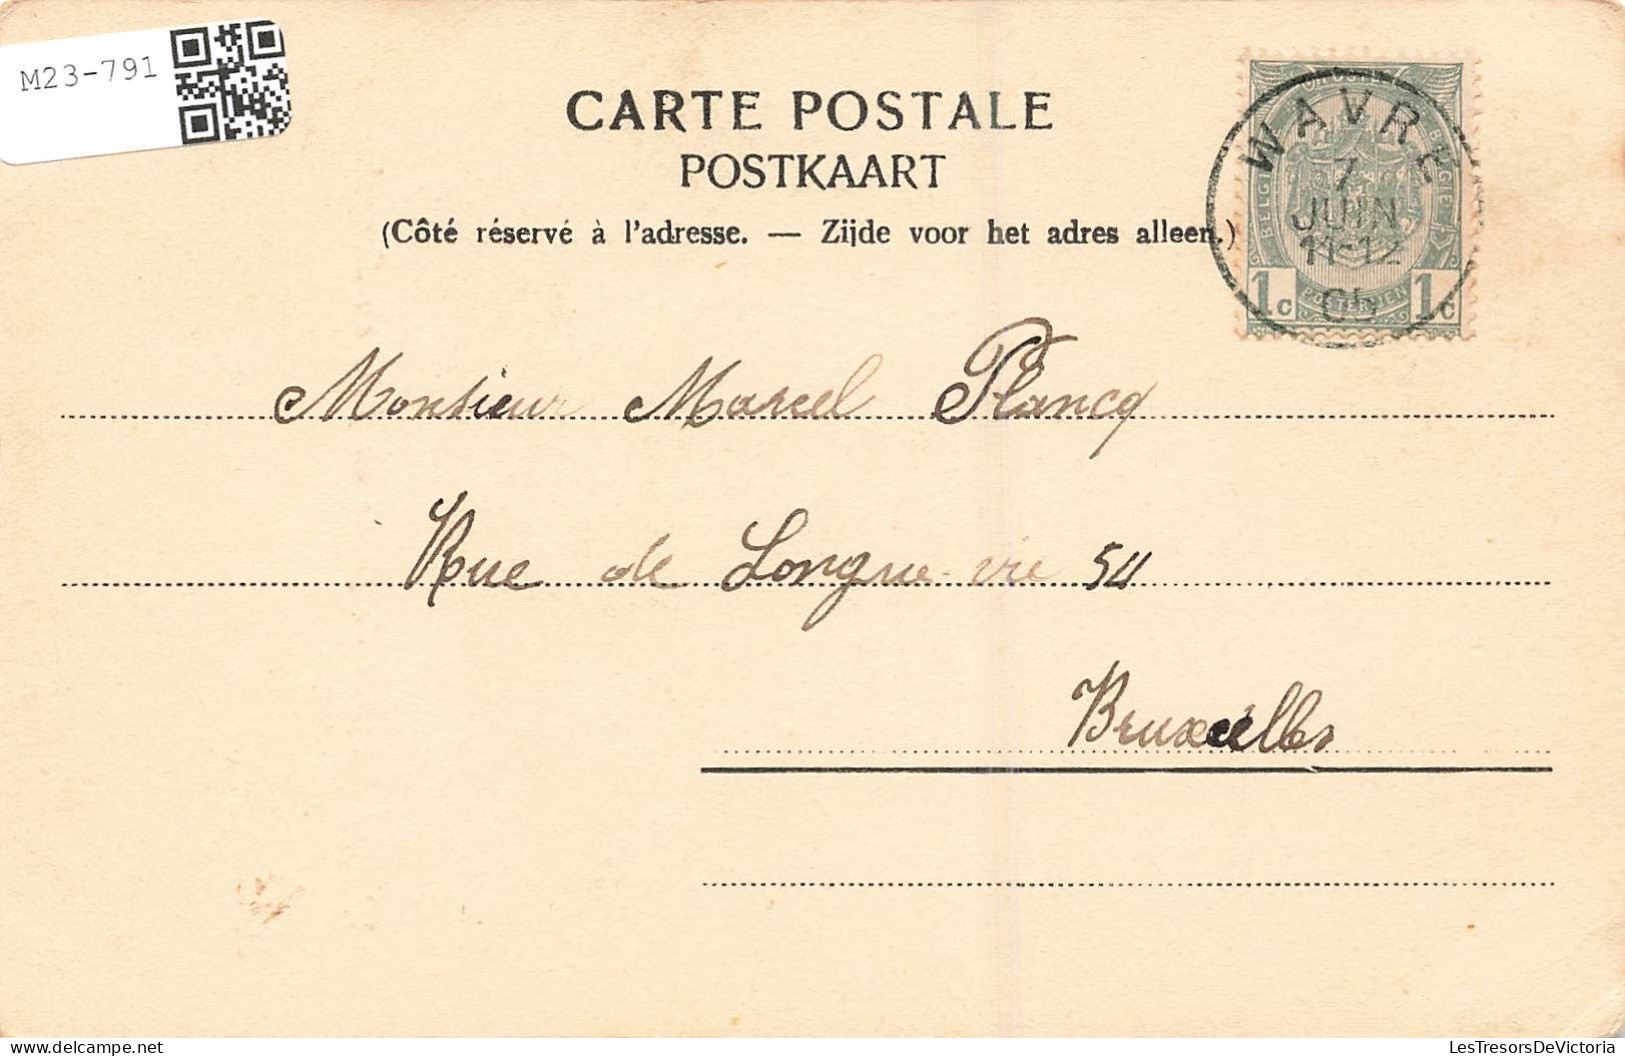 M23-791
CARTE POSTALE
POSTKAART
(Côté réservé à l'adresse. — Zijde voor het adres alleen.)
WAVRE
7
JUIN
11-12
BELGIQUE
BELGIE
1c POSTERIJEN 1c
Monsieur Marcel Plancq
Rue de Longue-vie 54
Bruxelles
LesTresorsDeVictoria